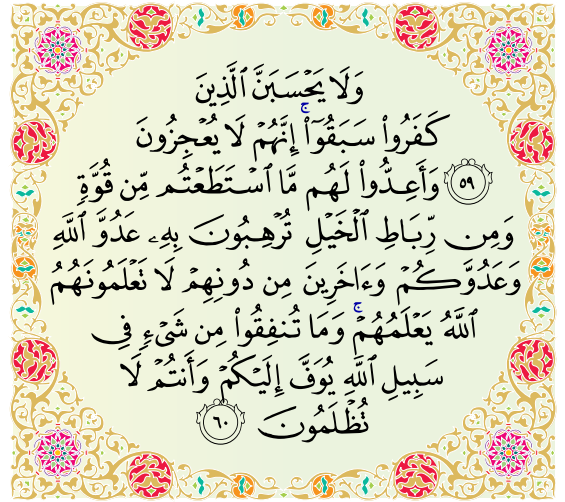 وَلَا يَحْسَبَنَّ ٱلَّذِينَ
كَفَرُوا۟ سَبَقُوٓا۟ ۚ إِنَّهُمْ لَا يُعْجِزُونَ
٥٩ وَأَعِدُّوا۟ لَهُم مَّا ٱسْتَطَعْتُم مِّن قُوَّةٍ
وَمِن رِّبَاطِ ٱلْخَيْلِ تُرْهِبُونَ بِهِۦ عَدُوَّ ٱللَّهِ
وَعَدُوَّكُمْ وَءَاخَرِينَ مِن دُونِهِمْ لَا تَعْلَمُونَهُمُ
ٱللَّهُ يَعْلَمُهُمْ ۚ وَمَا تُنفِقُوا۟ مِن شَىْءٍ فِى
سَبِيلِ ٱللَّهِ يُوَفَّ إِلَيْكُمْ وَأَنتُمْ لَا
تُظْلَمُونَ ٦٠